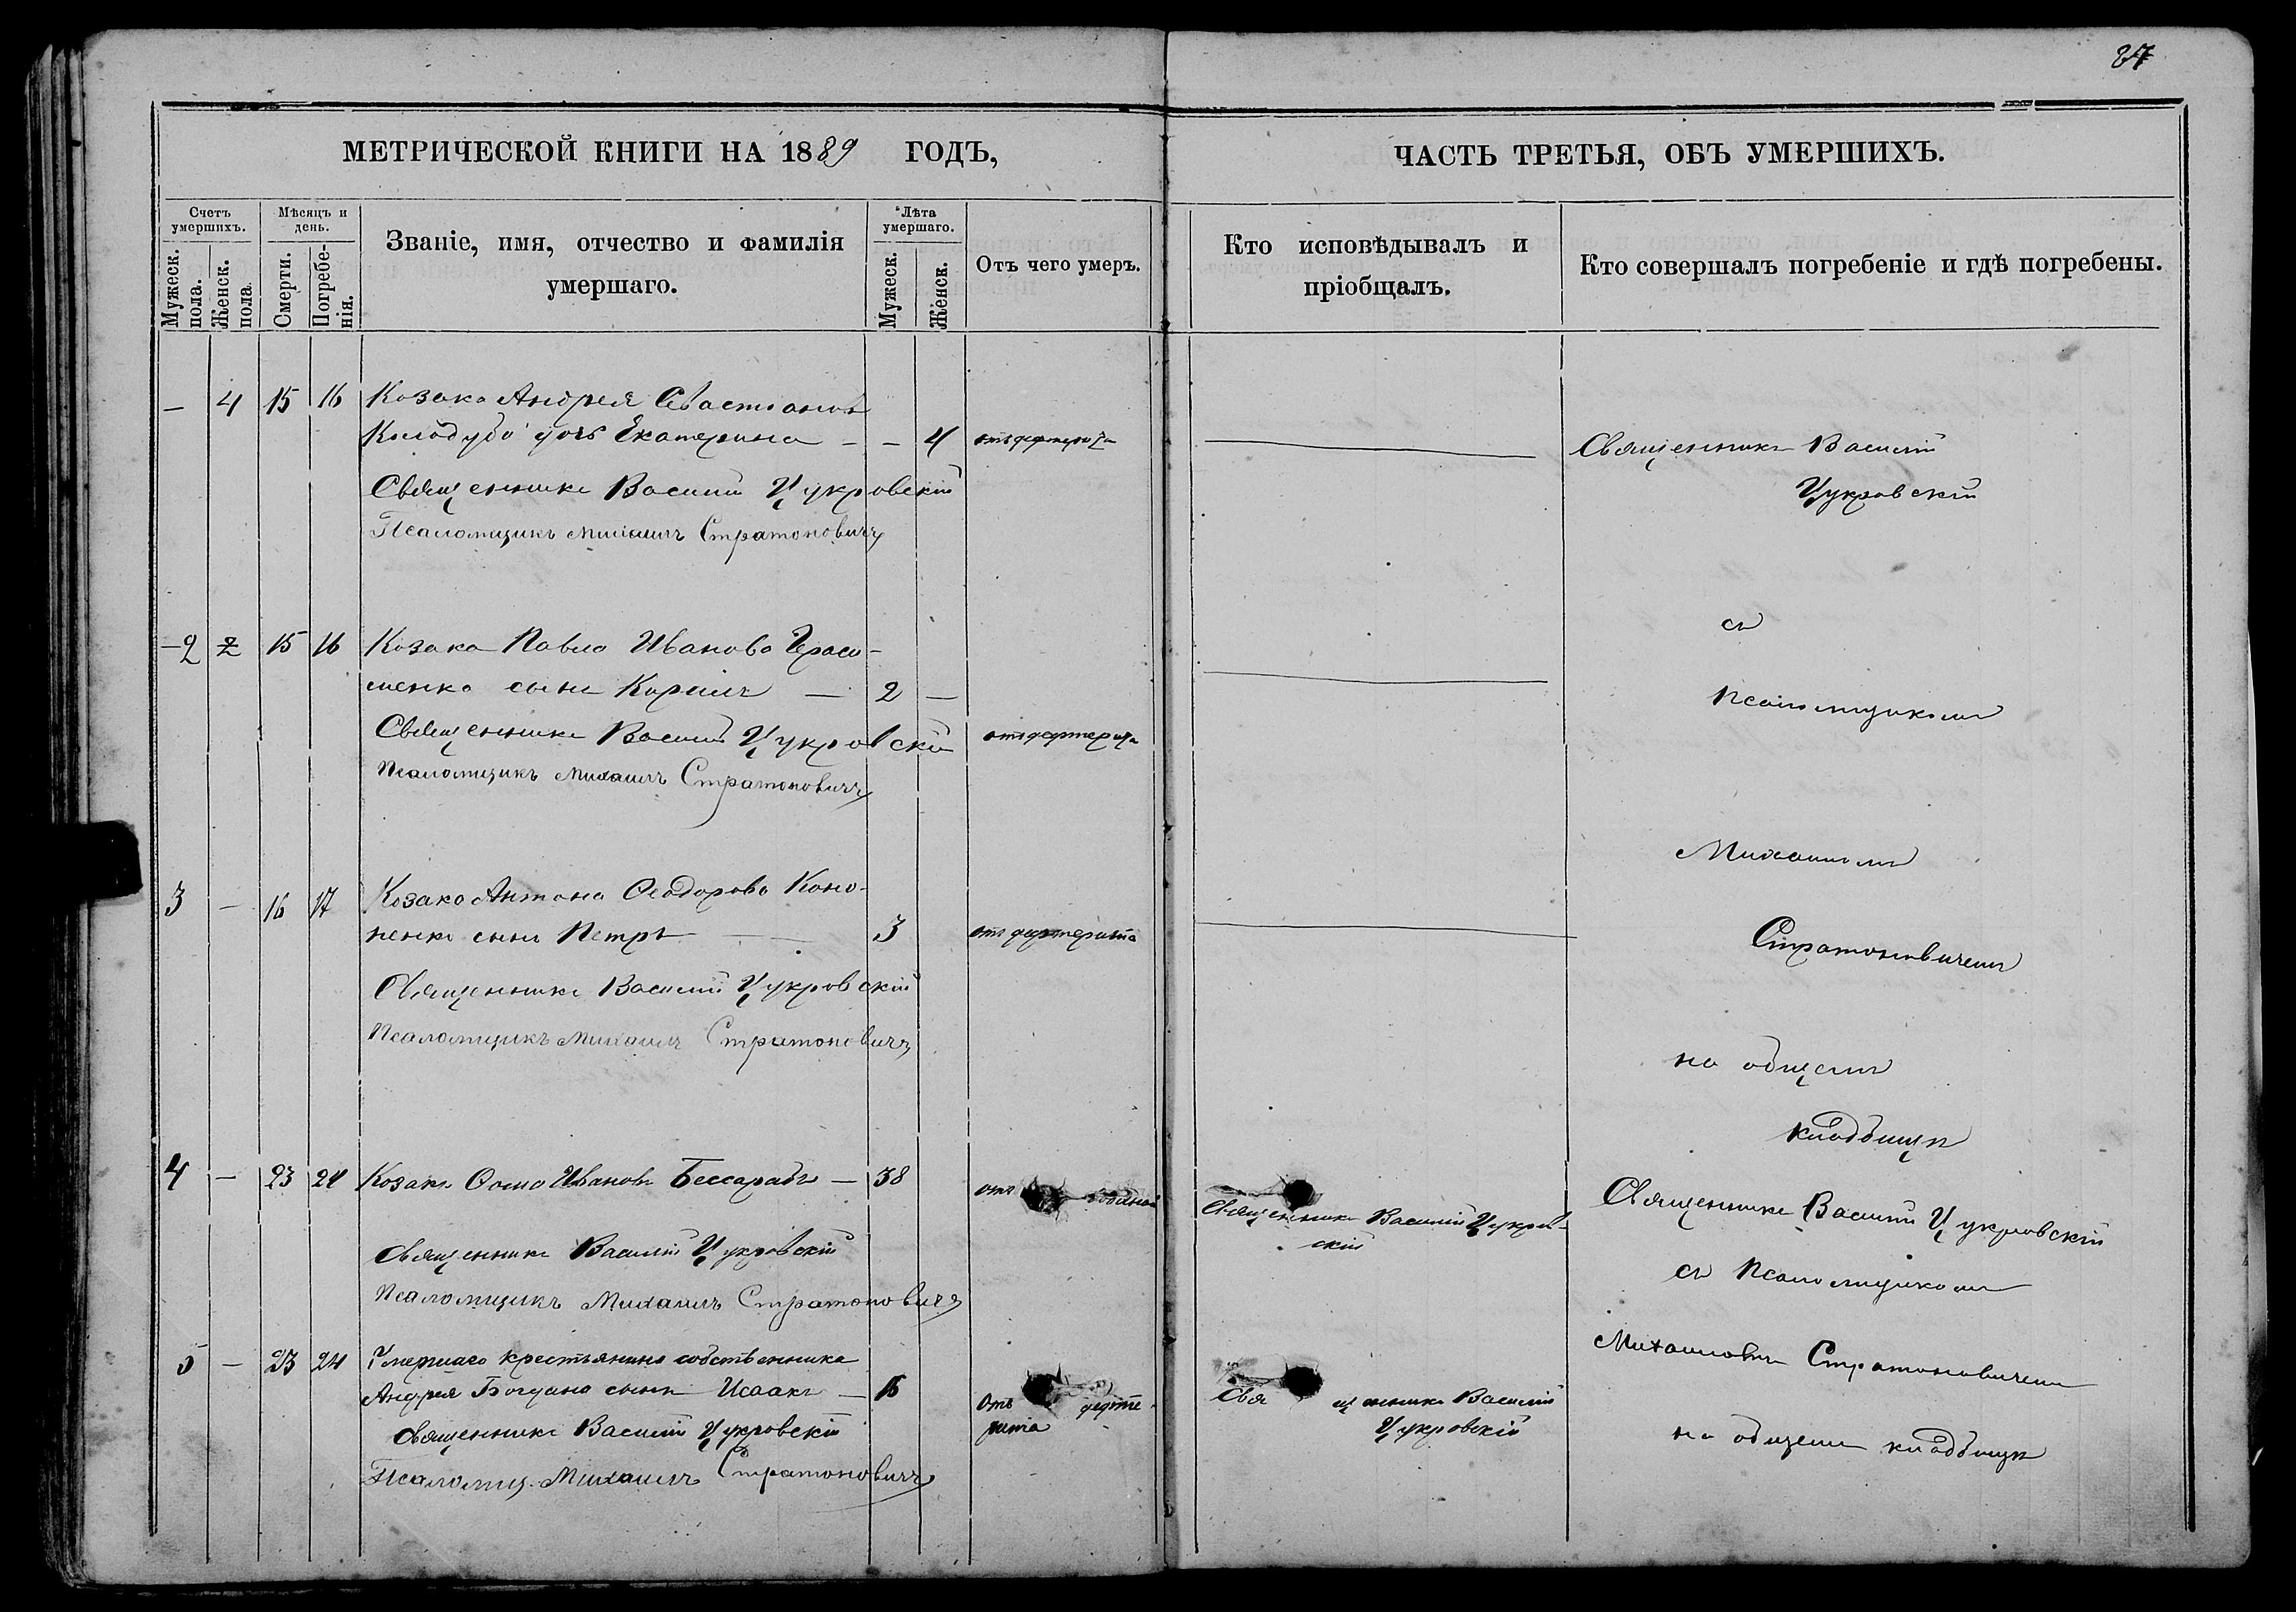 87
МЕТРИЧЕСКОЙ КНИГИ НА 1889 ГОДЪ,
ЧАСТЬ ТРЕТЬЯ, ОБЪ УМЕРШИХЪ.
Счетъ умершихъ.
Мужеск. пола.
Женск. пола
Мѣсяцъ и день.
Смерти.
Погребе-
нія.
Званіе, имя, отчество и фамилія
умершаго.
Лѣта умершаго.
Мужеск.
Женск.
Отъ чего умеръ.
Кто исповѣдывалъ и
пріобщалъ.
Кто совершалъ погребеніе и гдѣ погребены.
— 4 15 16 Козака Андрея Севастіанова
дочь Екатерина — — 4
Священникъ Василій Цукровскій
Псаломщикъ Михаилъ Стратоновичъ
Священникъ Василій
Цукровскій
—2 2 15 16 Козака Павла Иванова Гераси-
менка сынъ Кирилъ — 2 —
Священникъ Василій Цукровскій
Псаломщикъ Михаилъ Стратоновичъ
съ
Псаломщикомъ
Михаиломъ
3 — 16 17 Козака Антона Ѳеодорова Коно-
ненка сынъ Петръ — 3 отъ дифтерита
Священникъ Василій Цукровскій
Псаломщикъ Михаилъ Стратоновичъ
Стратоновичемъ
на общемъ
кладбищѣ
4 — 23 24 Козакъ Ѳома Ивановъ Бессарабъ — 38 отъ
Священникъ Василій Цукровскій
Псаломщикъ Михаилъ Стратоновичъ
Священникъ Василій Цукров-
скій
Священникъ Василій Цукровскій
съ Псаломщикомъ
5 — 23 24 Умершаго крестьянина собственника
Андрея Богдана сынъ Исаакъ — 16 Отъ дифте-
рита
Священникъ Василій Цукровскій
Псаломщ. Михаилъ Стратоновичъ
Священникъ Василій
Цукровскій
Михаиломъ Стратоновичемъ
на общемъ кладбищѣ